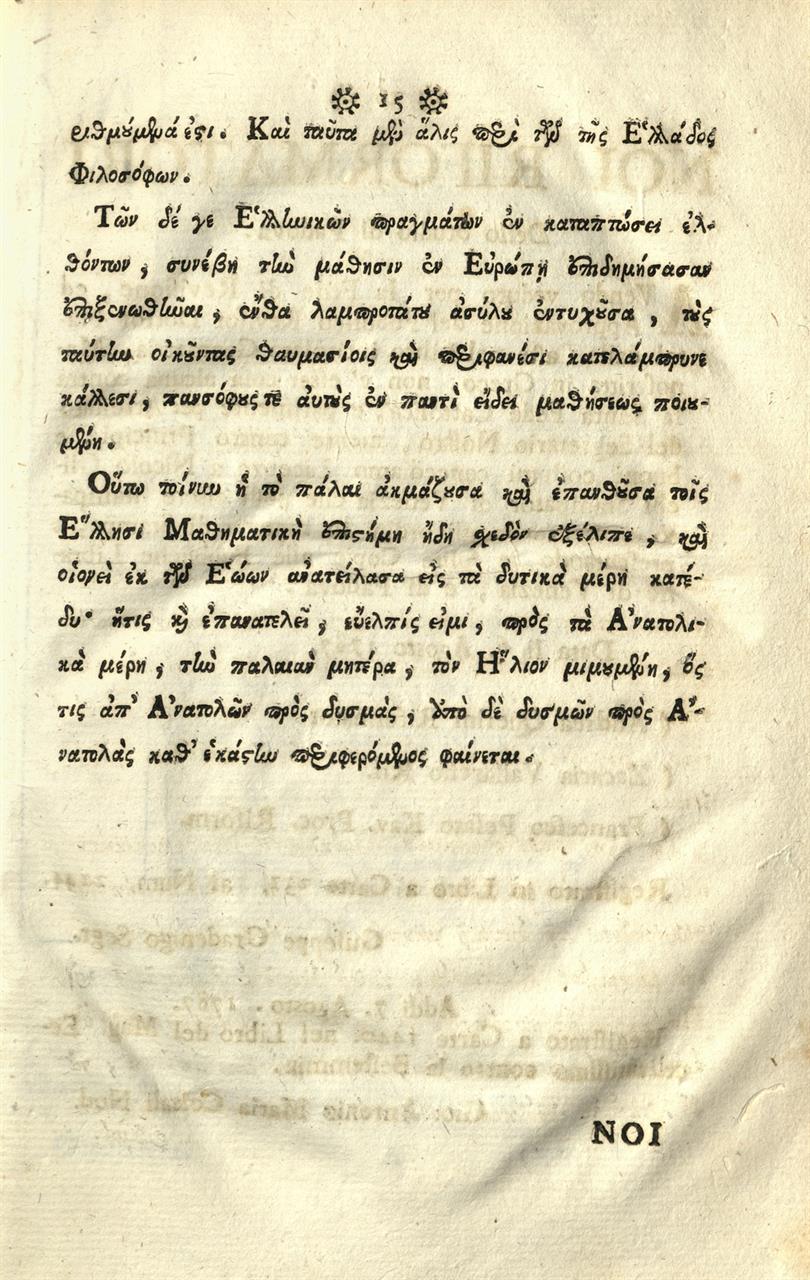 15
ριθμούμενά ἐστι. Καὶ ταῦτα μὲν ἅλις περὶ τῶν τῆς Ἑλλάδος
Φιλοσόφων.
Τῶν δέ γε Ἑλληνικῶν πραγμάτων ἐν καταπτώσει ἐλ-
θόντων, συνέβη τὴν μάθησιν ἐν Εὐρώπῃ ἐπιδημήσασαν
ἐπιξενωθῆναι, ἔνθα λαμπροτάτου ἀσύλου ἐντυχοῦσα, τοὺς
ταύτην οἰκοῦντας θαυμασίοις καὶ περιφανέσι κατελάμπρυνε
κάλλεσι, πανσόφους τε αὐτοὺς ἐν παντὶ εἴδει μαθήσεως ποιου-
μένη.
Οὕτω τοίνυν ἡ τὸ πάλαι ἀκμάζουσα καὶ ἐπανθοῦσα τοῖς
Ἕλλησι Μαθηματικὴ ἐπιστήμη ἤδη σχεδὸν ἐξέλιπε, καὶ
οἱονεὶ ἐκ τῶν Ἑώων ἀνατείλασα εἰς τὰ δυτικὰ μέρη κατέ-
δυ· ἥτις καὶ ἐπανατελεῖ, εὔελπίς εἰμι, πρὸς τὰ Ἀνατολι-
κὰ μέρη, τὴν παλαιὰν μητέρα, τὸν Ἥλιον μιμουμένη, ὅς
τις ἀπ' Ἀνατολῶν πρὸς δυσμὰς, ὑπὸ δὲ δυσμῶν πρὸς Ἀ-
νατολὰς καθ' ἑκάστην περιφερόμενος φαίνεται.
ΝΟΙ